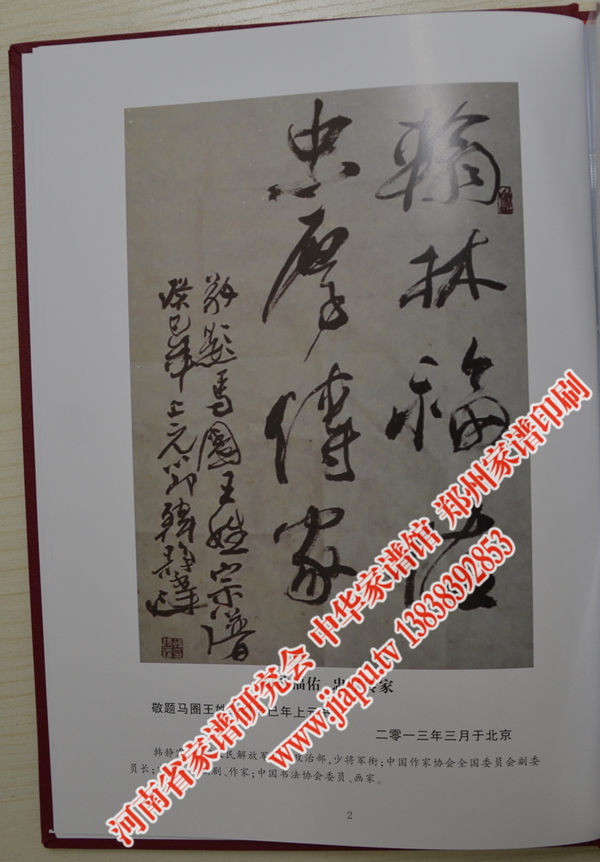 翰林福佑
忠厚传家
敬题马圈王姓宗谱
癸巳年上元节韩静霆
福佑 忠 家
敬题马圈王姓 巳年上元
二零一三年三月于北京
韩静 民解放军 政治部,少将军衔;中国作家协会全国委员会副委
员长; 剧、作家;中国书法协会委员、画家。
2
河南省家谱研究会 中华家谱馆 郑州家谱印刷
www.jiapu.tv 13838392853